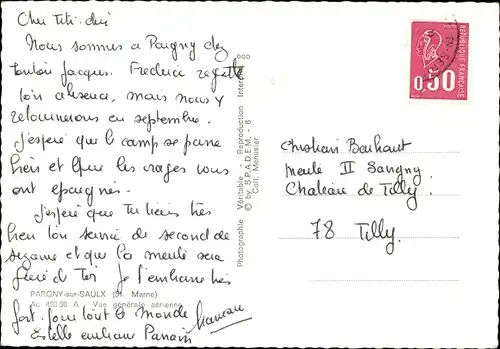 Cher Titi-
Nous sommes à Pargny chez
tonton Jacques. Frédéric regrette
ton absence, mais nous y
retournerons en septembre.
J'espère que le camp se passe
bien et que les orages vous
ont épargnés.
J'espère que tu tiens très
bien ton service de second de
sizaine et que la meute sera
fière de toi je t'embrasse très
PARGNY-sur-SAULX (51. Marne)
Vue générale aérienne
fort. pour tout le monde
Maman
Estelle embrasse
Photographie Véritable - Reproduction
© by S.P.A.D.E.M. - 6
Coll. Menusier
REPUBLIQUE FRANCAISE
0,50
Christian
Meute II Sangny
Chateau de Tilly.
78 Tilly.